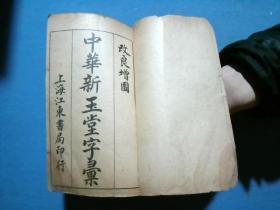 改良增圖
中華新玉堂字彙
上海江東書局印行